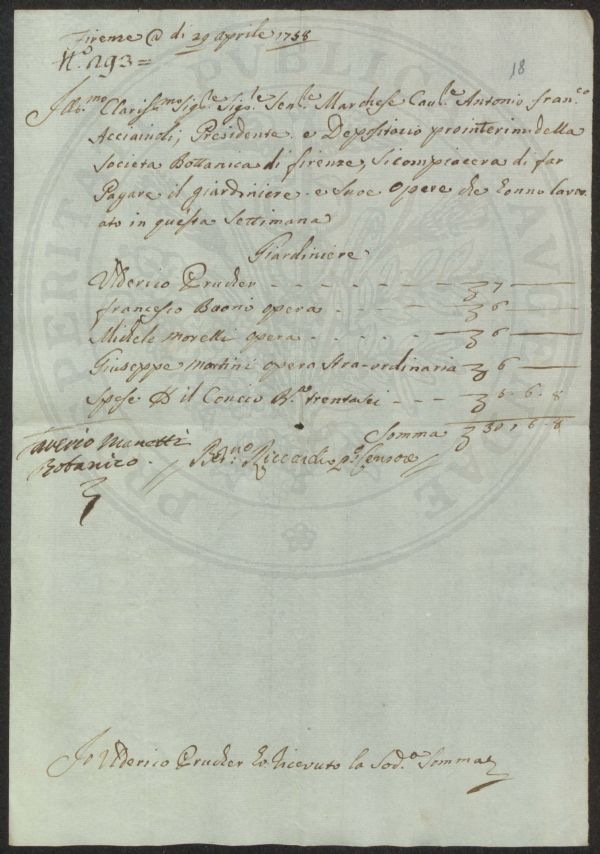 Firenze @ di 29 aprile 1758
N.° 293 =
18
Ill.mo Clariss.mo Sig.le Sig.le Sen.le Marchese Cau.le Antonio fran.co
Acciaiuoli, Presidente e Depositario prointerim della
Societa Bottanica di firenze, si compiacera di far
Pagare il giardiniere e suoe Opere che hanno lavor
ato in questa Settimana
Giardiniere
Uderico Prucher - - - - - - - 7 —
francesco Buonis opera - - - - 6 —
Michele Morelli opera - - - - 6 —
Giuseppe Martini opera stra-ordinaria 6 —
Spese il Concio B.e trentasei - - - 5 . 6 . 8
Somma 30 , 6 . 8
Saverio Manetti
Botanico.
Ber.no Riccardi p.o Censore
Io Uderico Prucher ho ricevuto la Sod.a Somma